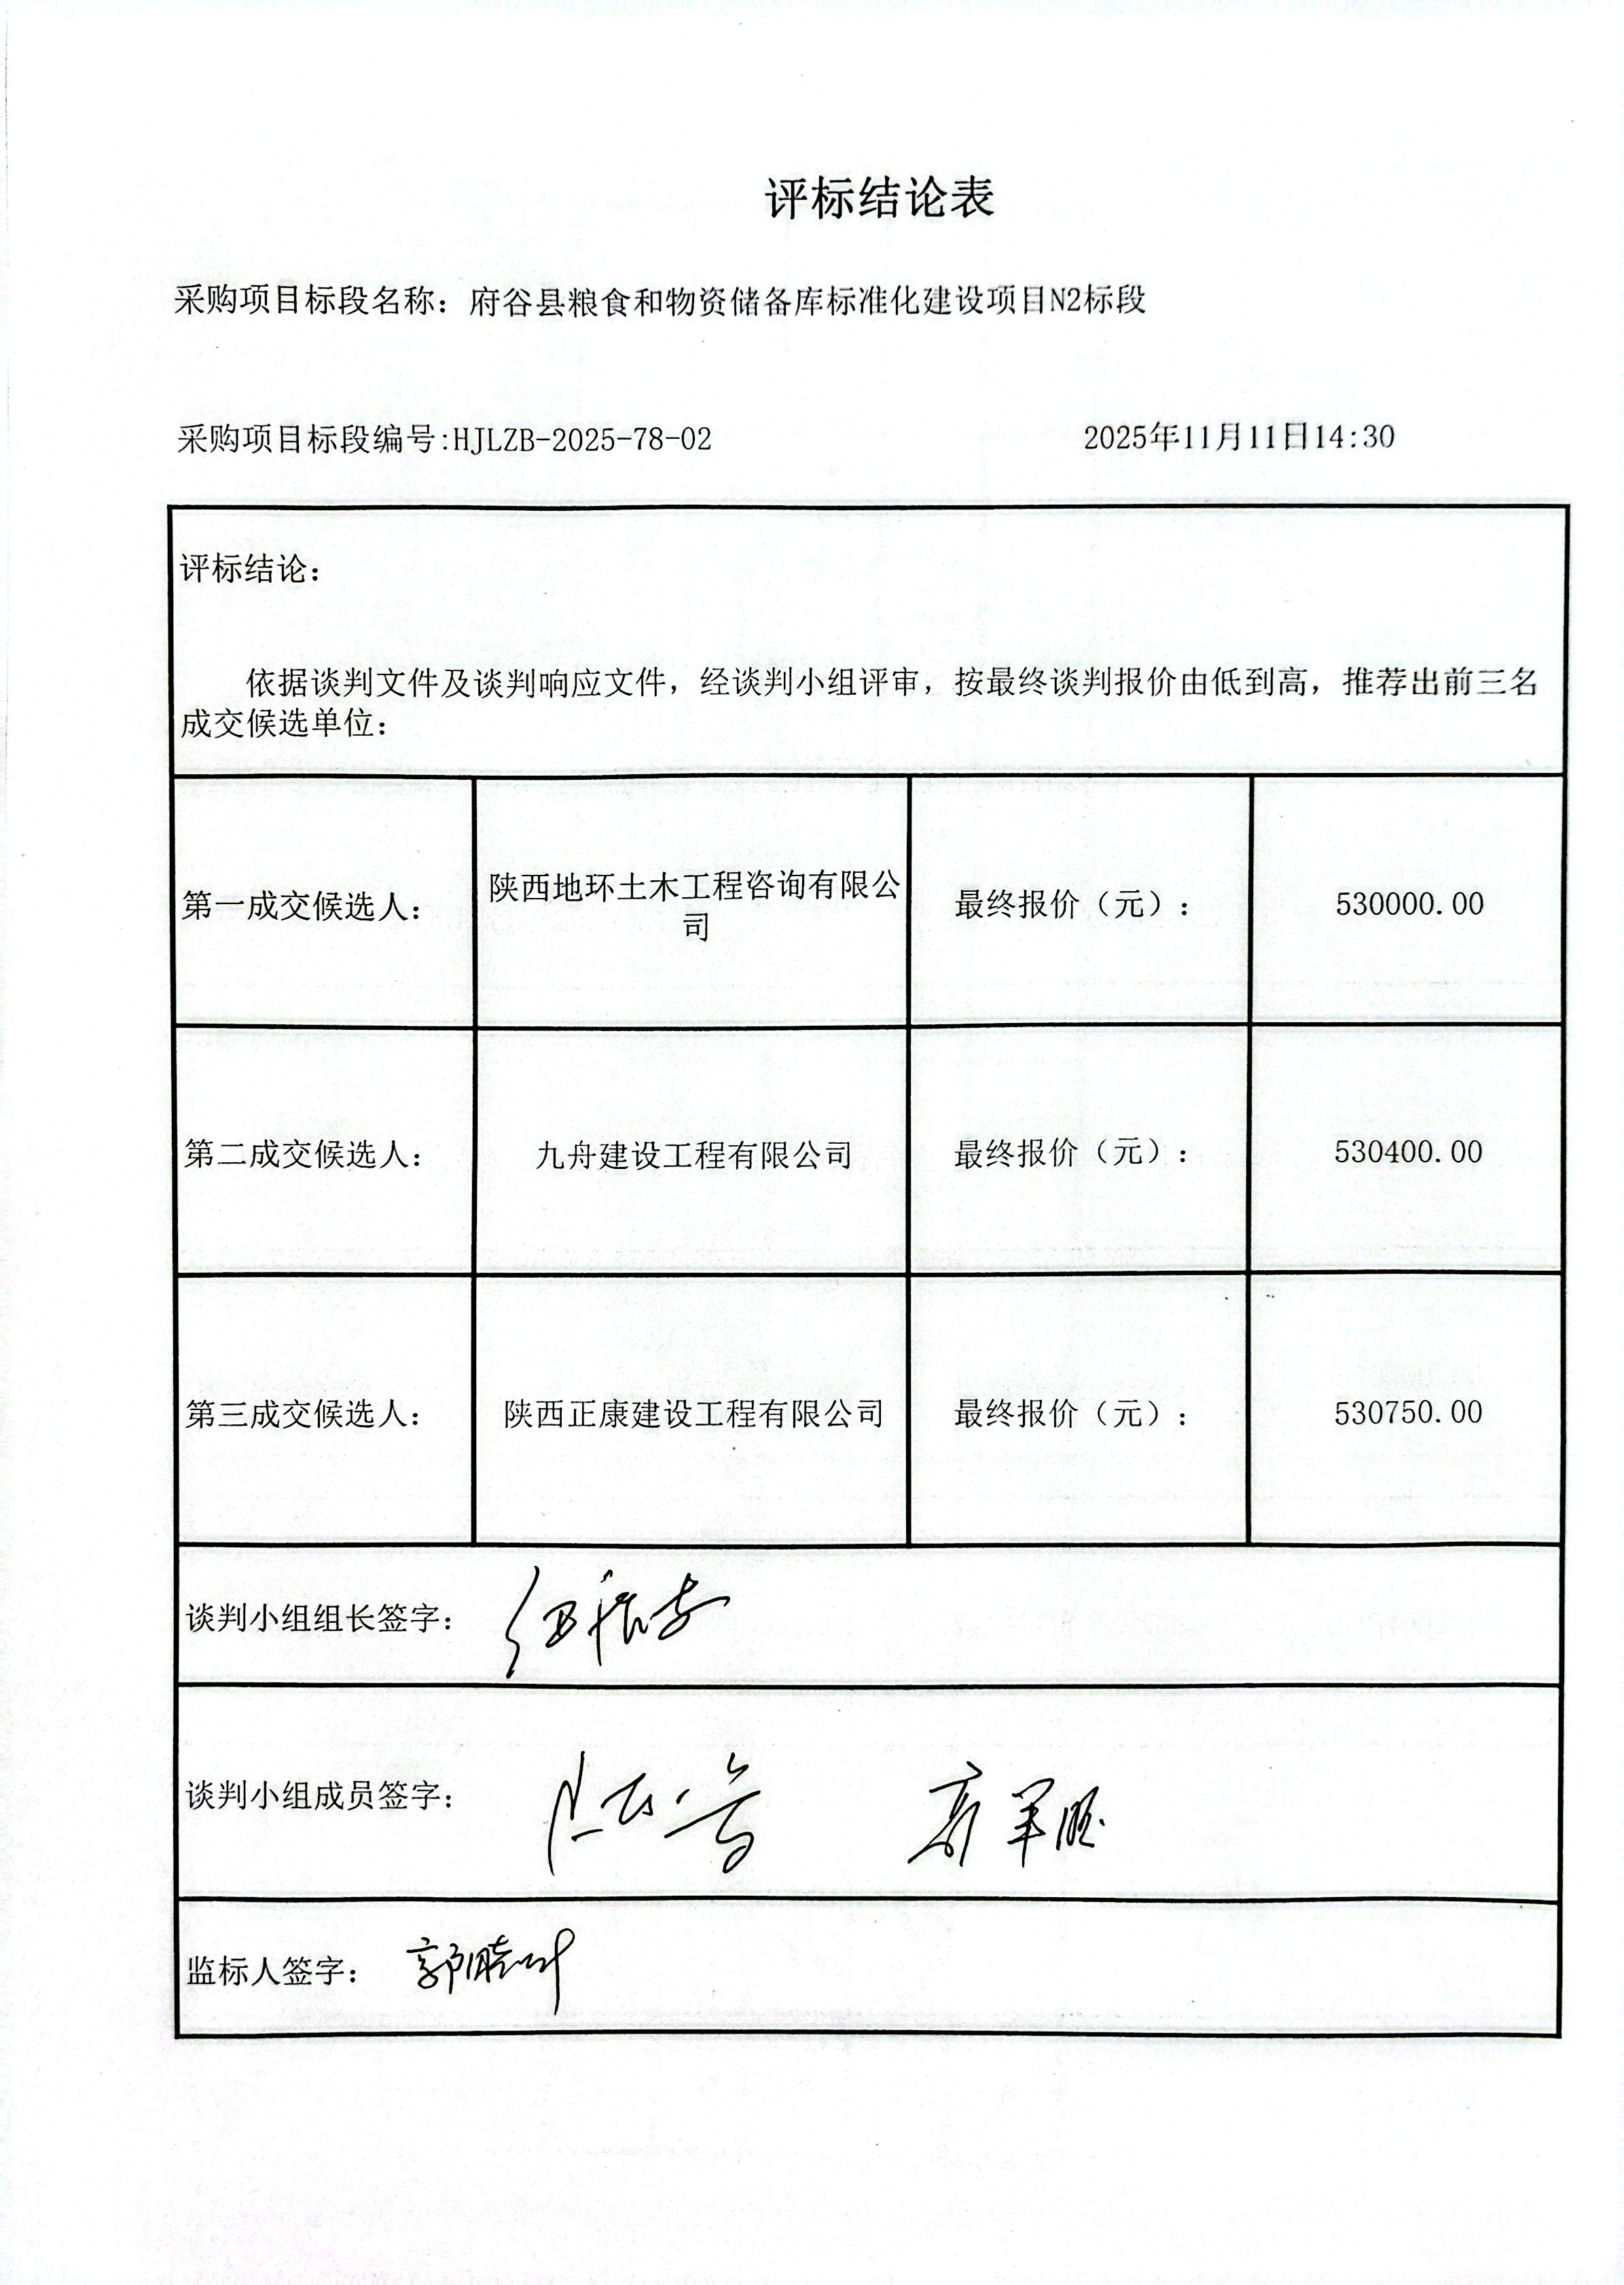 评标结论表
采购项目标段名称：府谷县粮食和物资储备库标准化建设项目N2标段
采购项目标段编号:HJLZB-2025-78-02 2025年11月11日14:30
评标结论：
依据谈判文件及谈判响应文件，经谈判小组评审，按最终谈判报价由低到高，推荐出前三名
成交候选单位：
第一成交候选人： 陕西地环土木工程咨询有限公 最终报价（元）： 530000.00
司
第二成交候选人： 九舟建设工程有限公司 最终报价（元）： 530400.00
第三成交候选人： 陕西正康建设工程有限公司 最终报价（元）： 530750.00
谈判小组组长签字：
谈判小组成员签字：
监标人签字：